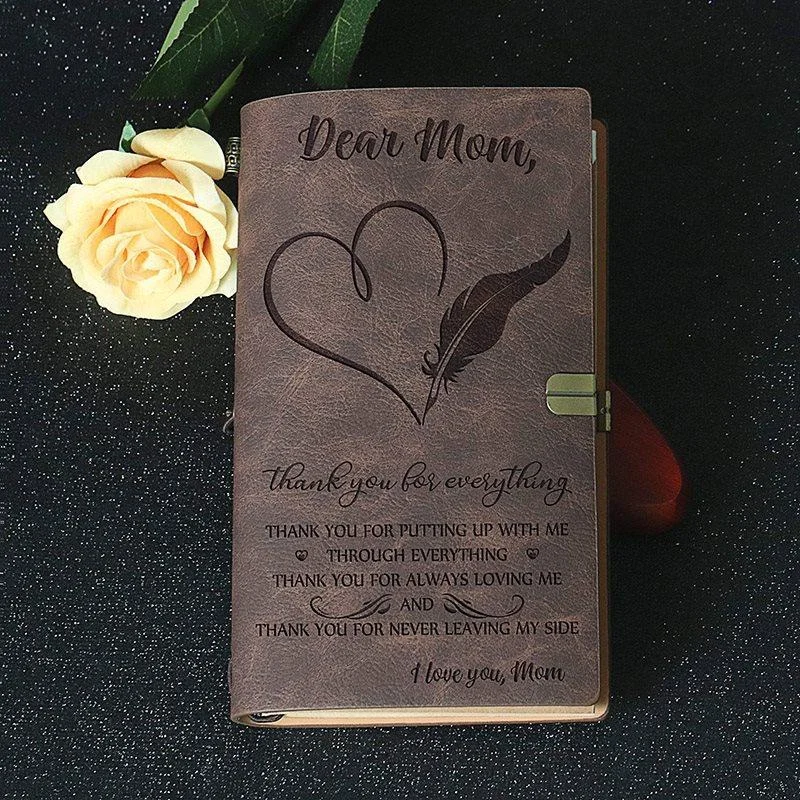 Dear Mom,
thank you for everything
THANK YOU FOR PUTTING UP WITH ME
THROUGH EVERYTHING
THANK YOU FOR ALWAYS LOVING ME
AND
THANK YOU FOR NEVER LEAVING MY SIDE
I love you, Mom